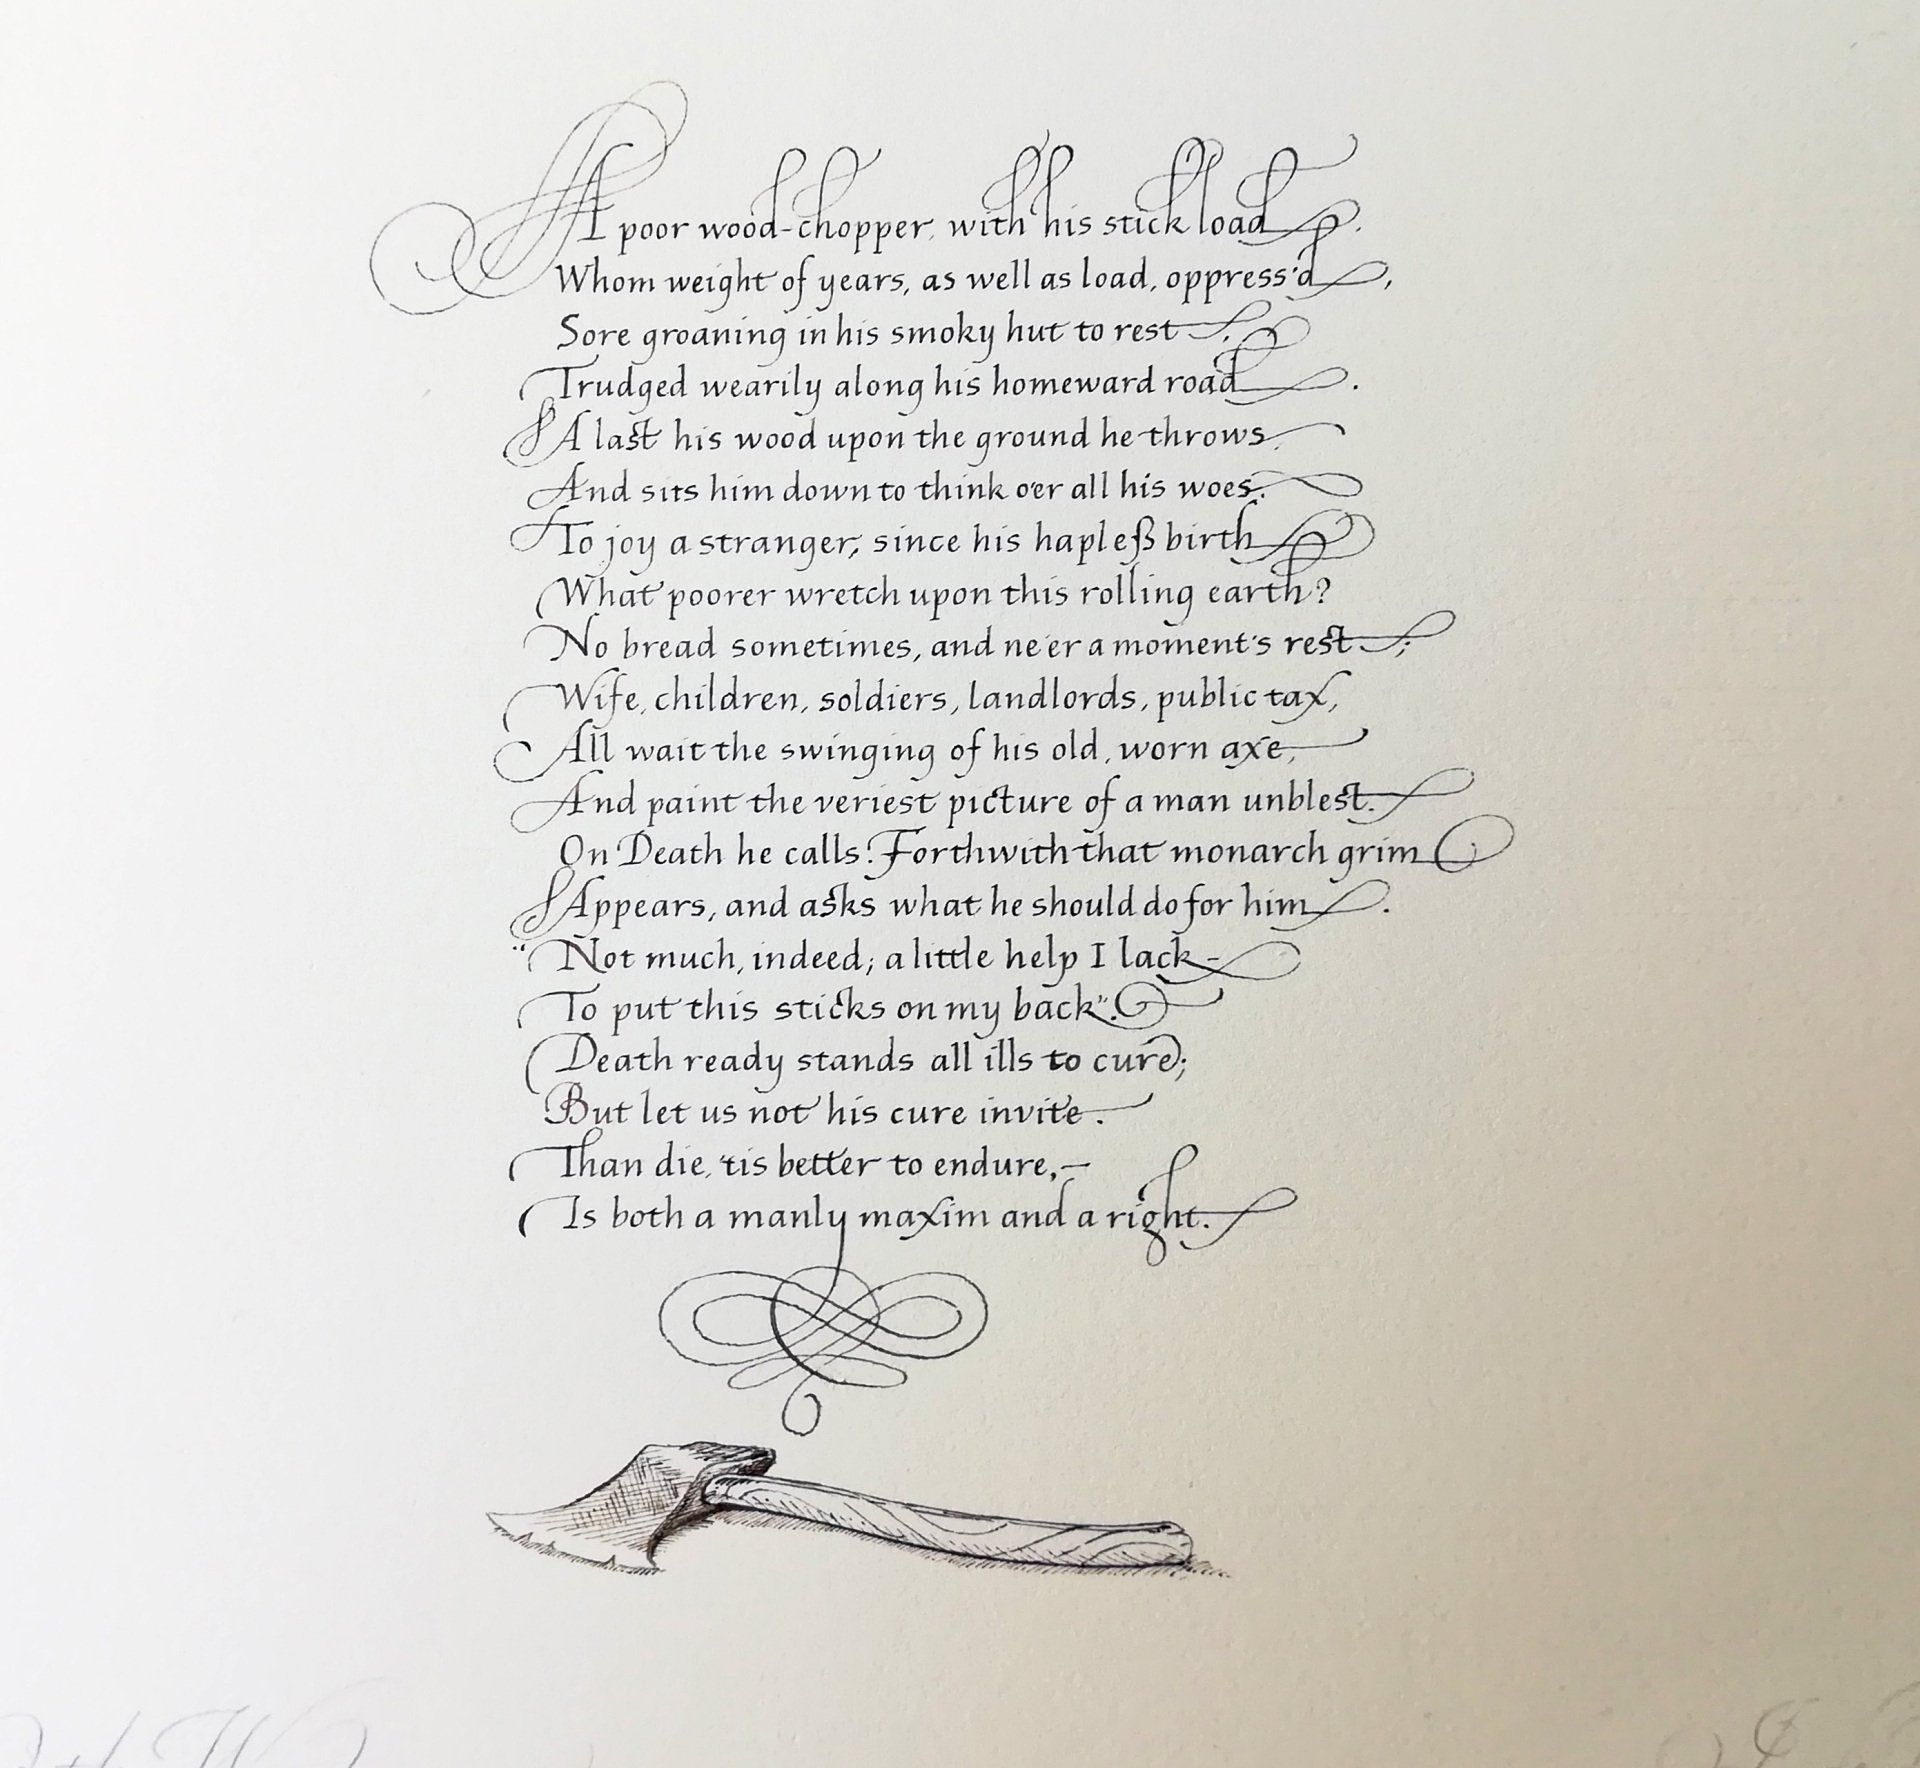 A poor wood-chopper, with his stick load.
Whom weight of years, as well as load, oppress'd,
Sore groaning in his smoky hut to rest,
Trudged wearily along his homeward road.
A last his wood upon the ground he throws,
And sits him down to think o'er all his woes.
To joy a stranger, since his hapleß birth
What poorer wretch upon this rolling earth?
No bread sometimes, and ne'er a moment's rest;
Wife, children, soldiers, landlords, public tax,
All wait the swinging of his old, worn axe,
And paint the veriest picture of a man unblest.
On Death he calls. Forthwith that monarch grim
Appears, and asks what he should do for him.
"Not much, indeed; a little help I lack-
To put this sticks on my back".
Death ready stands all ills to cure;
But let us not his cure invite.
Than die, 'tis better to endure,–
Is both a manly maxim and a right.